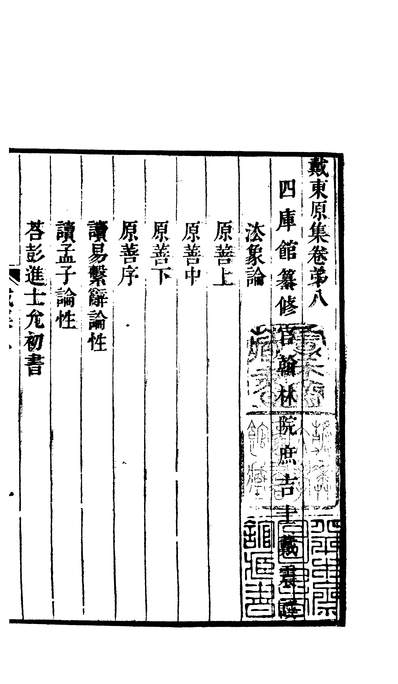 戴東原集卷弟八
四庫館纂修官翰林院庶吉士戴震譔
法象論
原善上
原善中
原善下
原善序
讀易繫辭論性
讀孟子論性
荅彭進士允初書